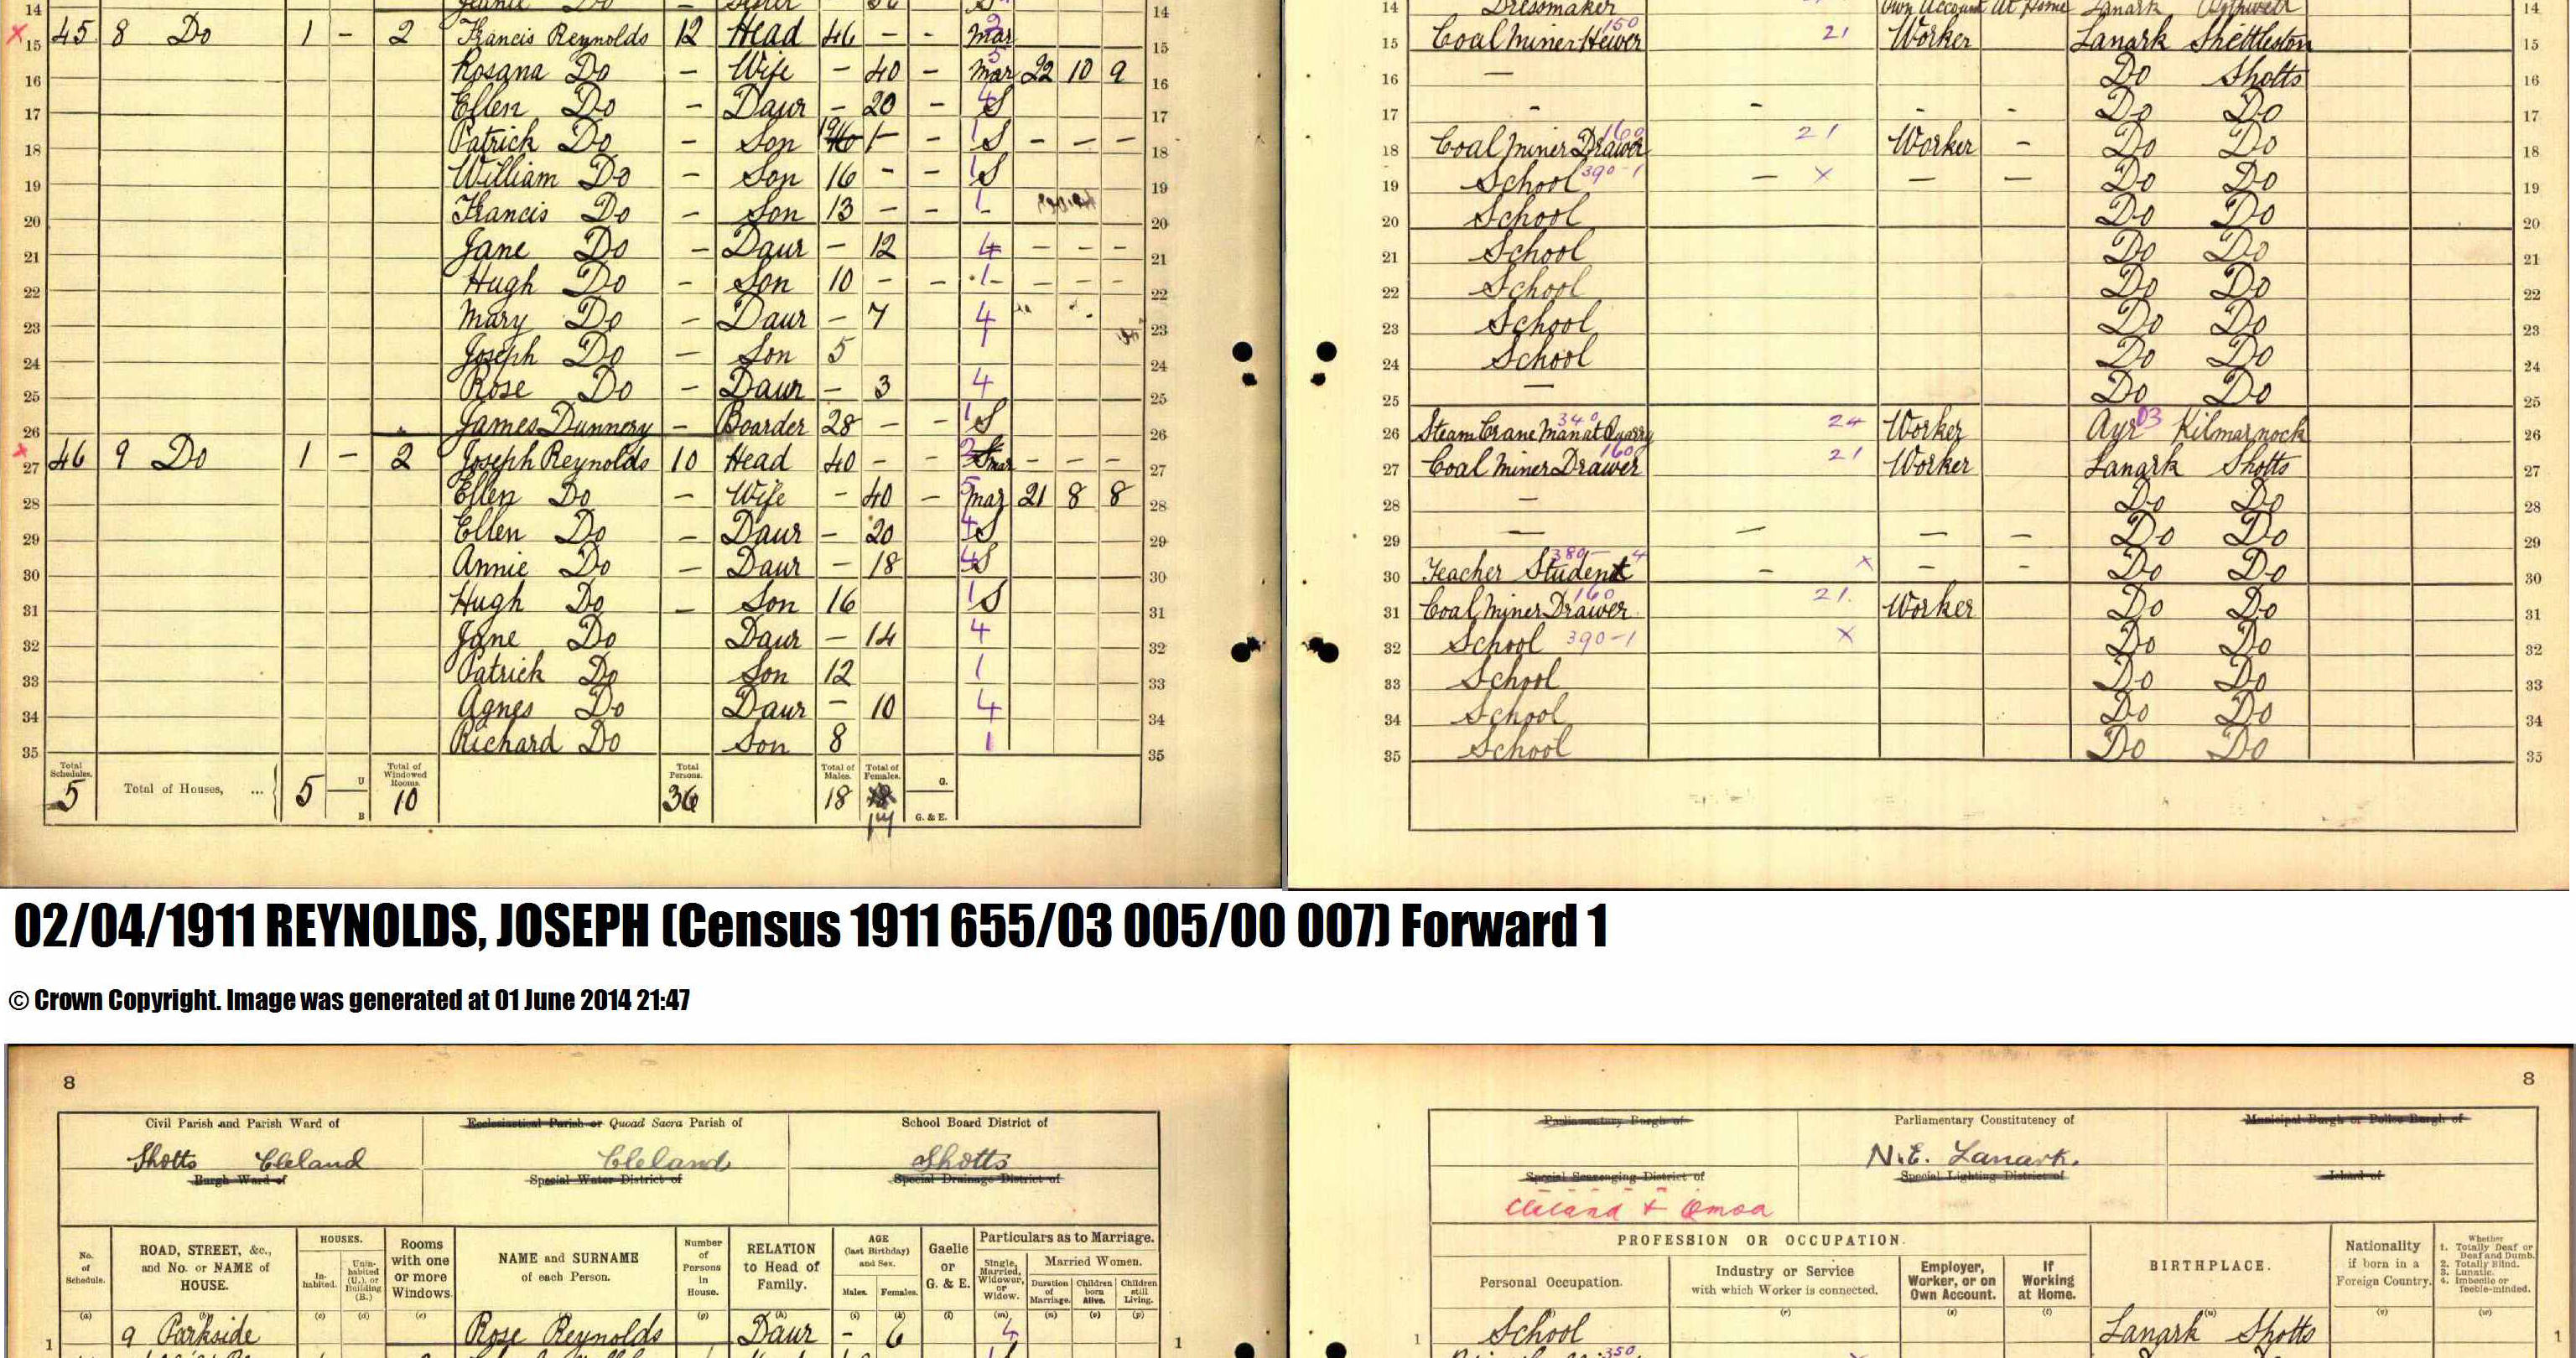 14 Dressmaker Own Account At Home Lanark Bothwell 14
15 45 8 Do 1 - 2 Francis Reynolds 12 Head 46 - - Mar 15 Coal Miner Hewer 150 21 Worker Lanark Shettleston
16 Rosana Do - Wife - 40 - Mar 22 10 9 16 - Do Shotts
17 Ellen Do - Daur - 20 - S 17 - - - - Do Do
18 Patrick Do - Son - - S - - - 18 Coal Miner Drawer 160 21 Worker - Do Do
19 William Do - Son 16 - - S 19 School 390-1 - x - - Do Do
20 Francis Do - Son 13 - - 1 20 School Do Do
21 Jane Do - Daur - 12 4 - - - 21 School Do Do
22 Hugh Do - Son 10 - - 1 - - - 22 School Do Do
23 Mary Do - Daur - 7 4 23 School Do Do
24 Joseph Do - Son 5 1 24 School Do Do
25 Rose Do - Daur - 3 4 25 - Do Do
26 James Dunnery - Boarder 28 - - S 26 Steam Crane Man at Quarry 340 24 Worker Ayr 03 Kilmarnock
27 46 9 Do 1 - 2 Joseph Reynolds 10 Head 40 - - Mar - - - 27 Coal Miner Drawer 160 21 Worker Lanark Shotts
28 Ellen Do - Wife - 40 - Mar 21 8 8 28 - Do Do
29 Ellen Do - Daur - 20 4 S 29 - - - - Do Do
30 Annie Do - Daur - 18 4 S 30 Teacher Student 380-4 - x - - Do Do
31 Hugh Do - Son 16 1 S 31 Coal Miner Drawer 160 21. Worker Do Do
32 Jane Do Daur - 14 4 32 School 390-1 x Do Do
33 Patrick Do Son 12 1 33 School Do Do
34 Agnes Do Daur - 10 4 34 School Do Do
35 Richard Do Son 8 1 35 School Do Do
Total Schedules. 5 Total of Houses, ... 5 U B Total of Windowed Rooms. 10 Total Persons. 36 Total of Males. 18 Total of Females. G. G. & E.
02/04/1911 REYNOLDS, JOSEPH (Census 1911 655/03 005/00 007) Forward 1
© Crown Copyright. Image was generated at 01 June 2014 21:47
8 8
Civil Parish and Parish Ward of
Shotts Cleland
Burgh Ward of
Ecclesiastical Parish or Quoad Sacra Parish of
Cleland
Special Water District of
School Board District of
Shotts
Special Drainage District of
Parliamentary Burgh of
Special Scavenging District of
Cleland & Omoa
Parliamentary Constitutency of
N.E. Lanark.
Special Lighting District of
Municipal Burgh or Police Burgh of
Island of
No. of Schedule.
ROAD, STREET, &c., and No. or NAME of HOUSE.
HOUSES.
Inhabited.
Uninhabited (U.), or Building (B.)
Rooms with one or more Windows
NAME and SURNAME of each Person.
Number of Persons in House.
RELATION to Head of Family.
AGE (last Birthday) and Sex.
Males. Females.
Gaelic or G. & E.
Particulars as to Marriage.
Single, Married, Widower, or Widow.
Married Women.
Duration of Marriage.
Children born Alive.
Children still Living.
PROFESSION OR OCCUPATION.
Personal Occupation.
Industry or Service with which Worker is connected.
Employer, Worker, or on Own Account.
If Working at Home.
BIRTHPLACE.
Nationality if born in a Foreign Country.
Whether
1. Totally Deaf or Deaf and Dumb.
2. Totally Blind.
3. Lunatic.
4. Imbecile or feeble-minded.
1 9 Parkside Rose Reynolds Daur - 6 4 1 School Lanark Shotts 1